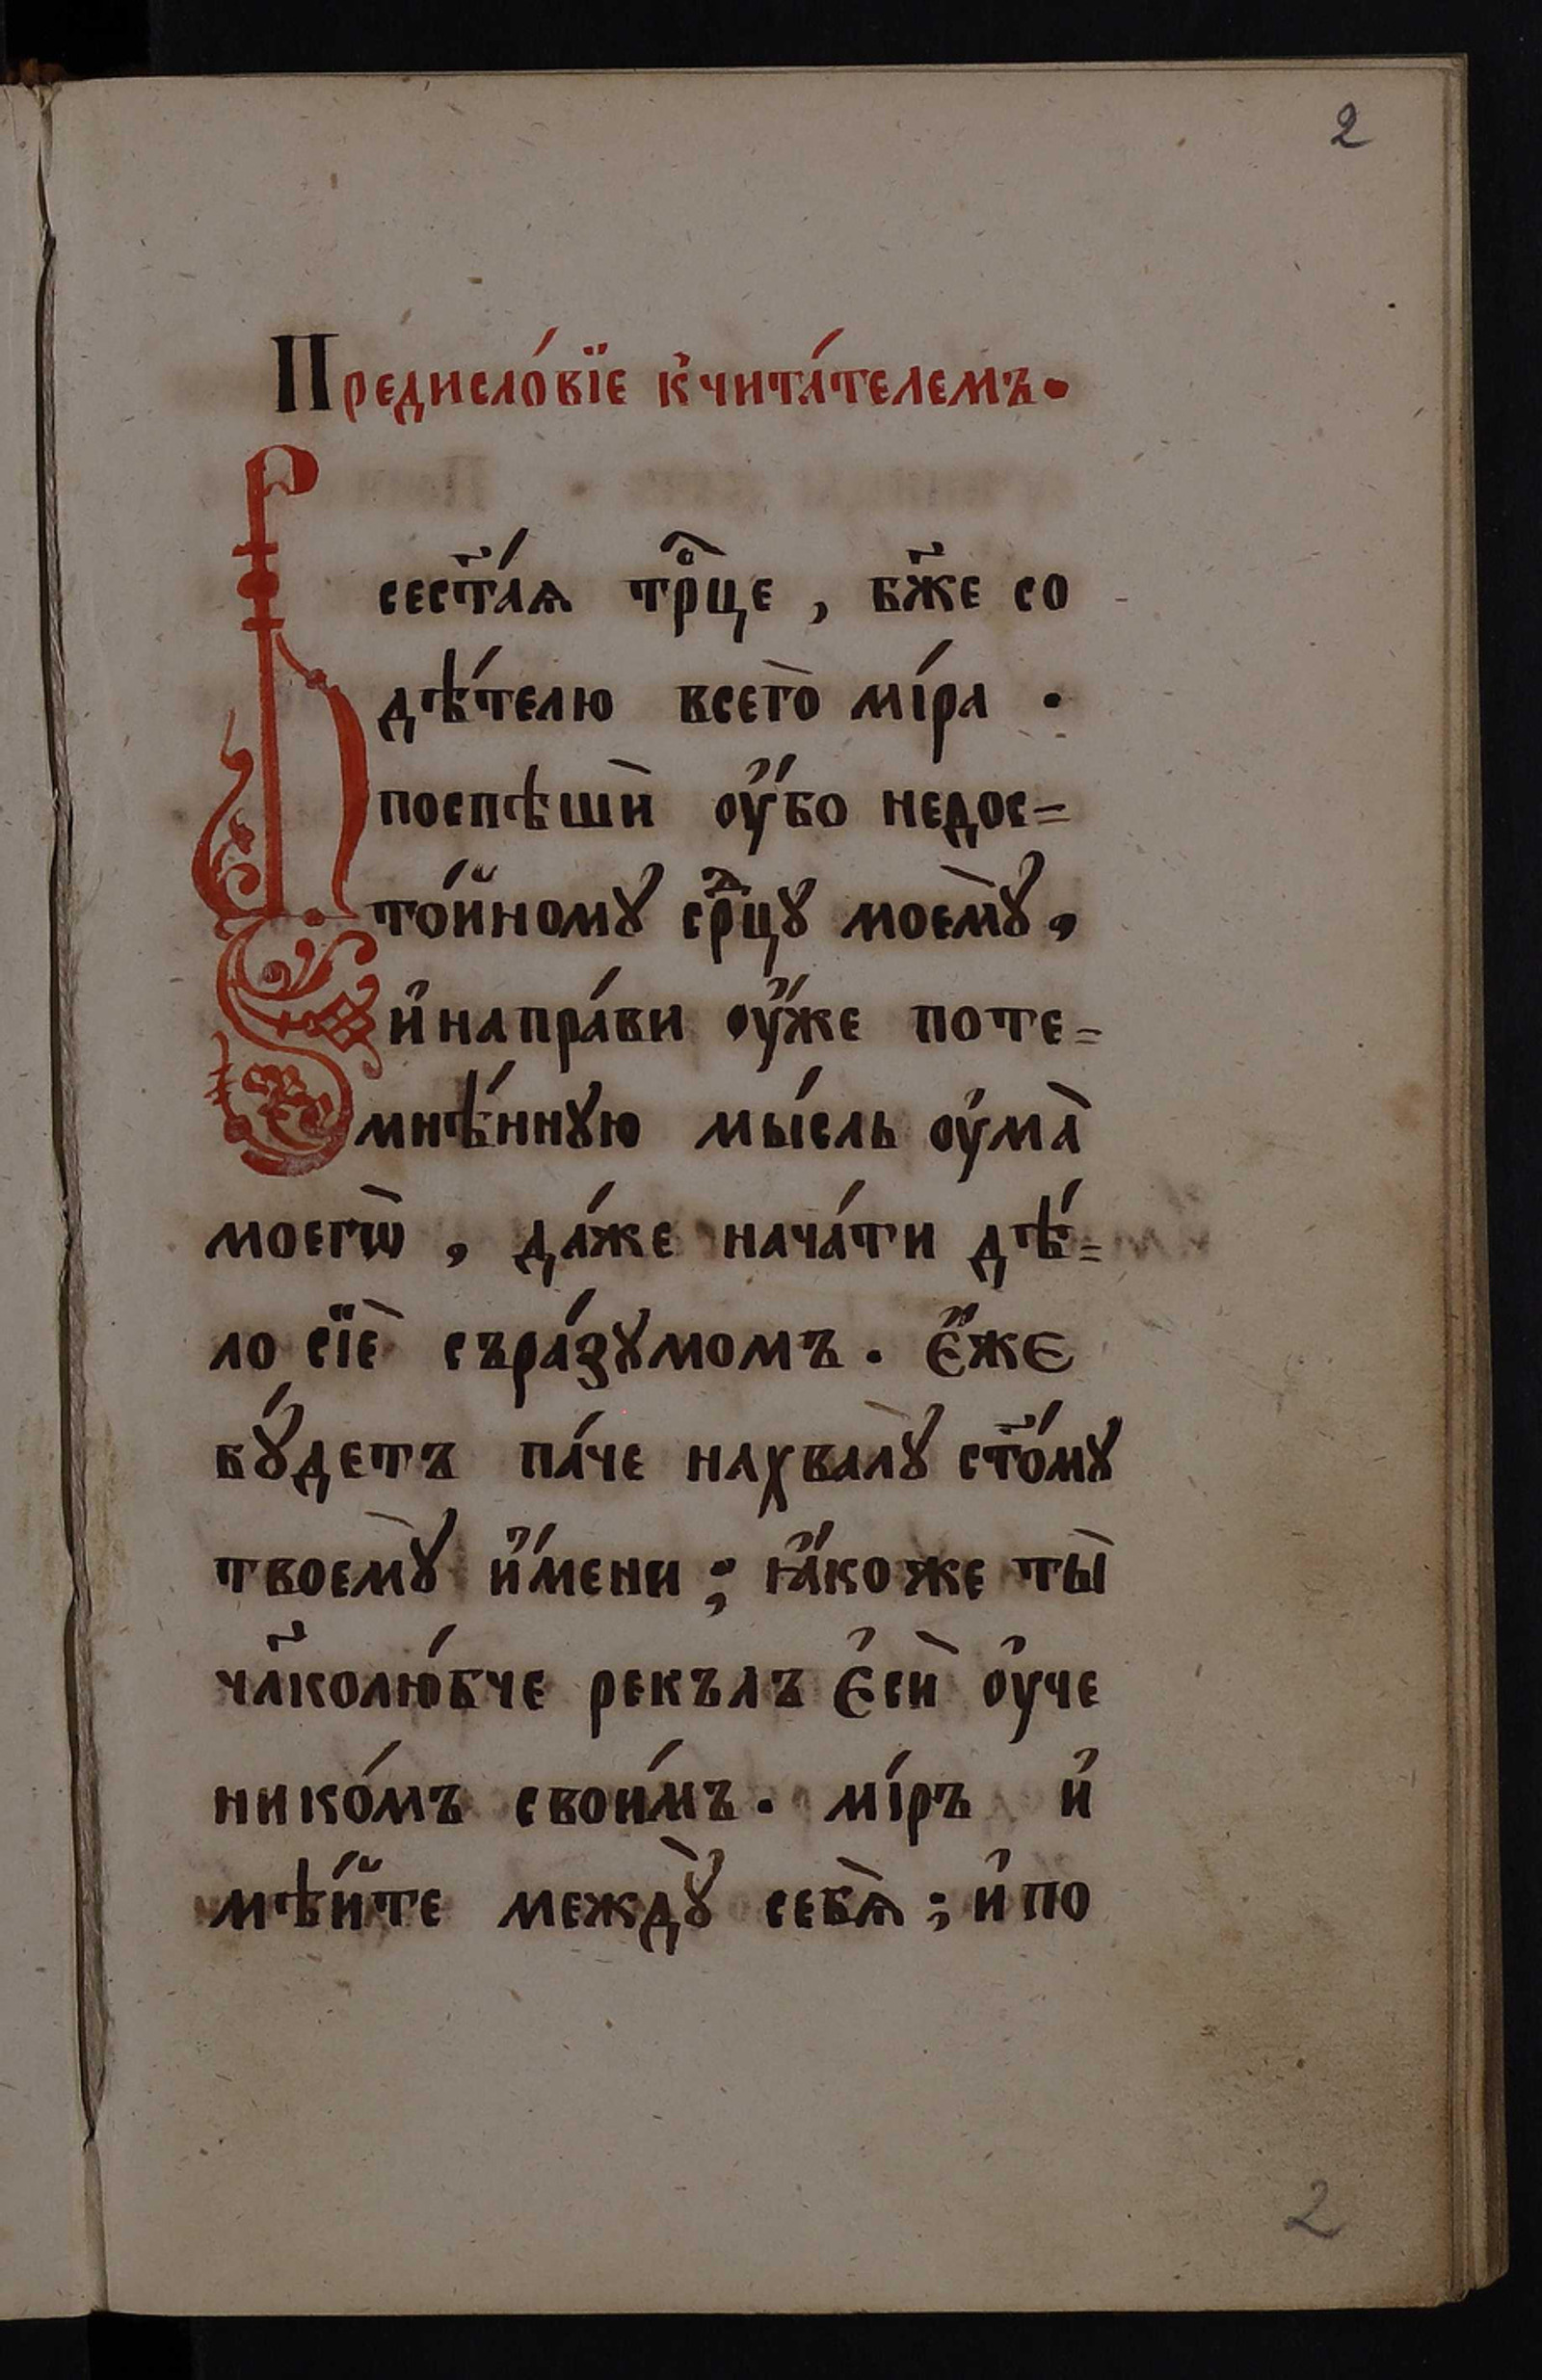 2
Предисло́вїе к̾чита́телемъ.
Всест҃а́ѧ трⷪ҇це, бж҃е со
дѣ́телю всегѡ̀ мі́ра .
поспѣшѝ ѹ҆́бо недос=
то́йномꙋ срⷣцꙋ моемꙋ̀,
и҆напра́ви ѹ҆́же поте=
мнѣ́ннꙋю мы́сль ѹ҆ма̀
моегѡ̀ , да́же нача́ти дѣ́=
ло сїѐ съра́зꙋмомъ . Є҆́же
бꙋ́детъ па́че нахвалꙋ̀ ст҃о́мꙋ
твоемꙋ̀ и҆́мени ; ꙗ҆́коже ты̀
чл҃колю́бче рекълъ Є҆сѝ ѹ҆че
нико́мъ свои́мъ . мі́ръ и҆
мѣ́йте междꙋ̀ себѧ̀ ; и҆по
2